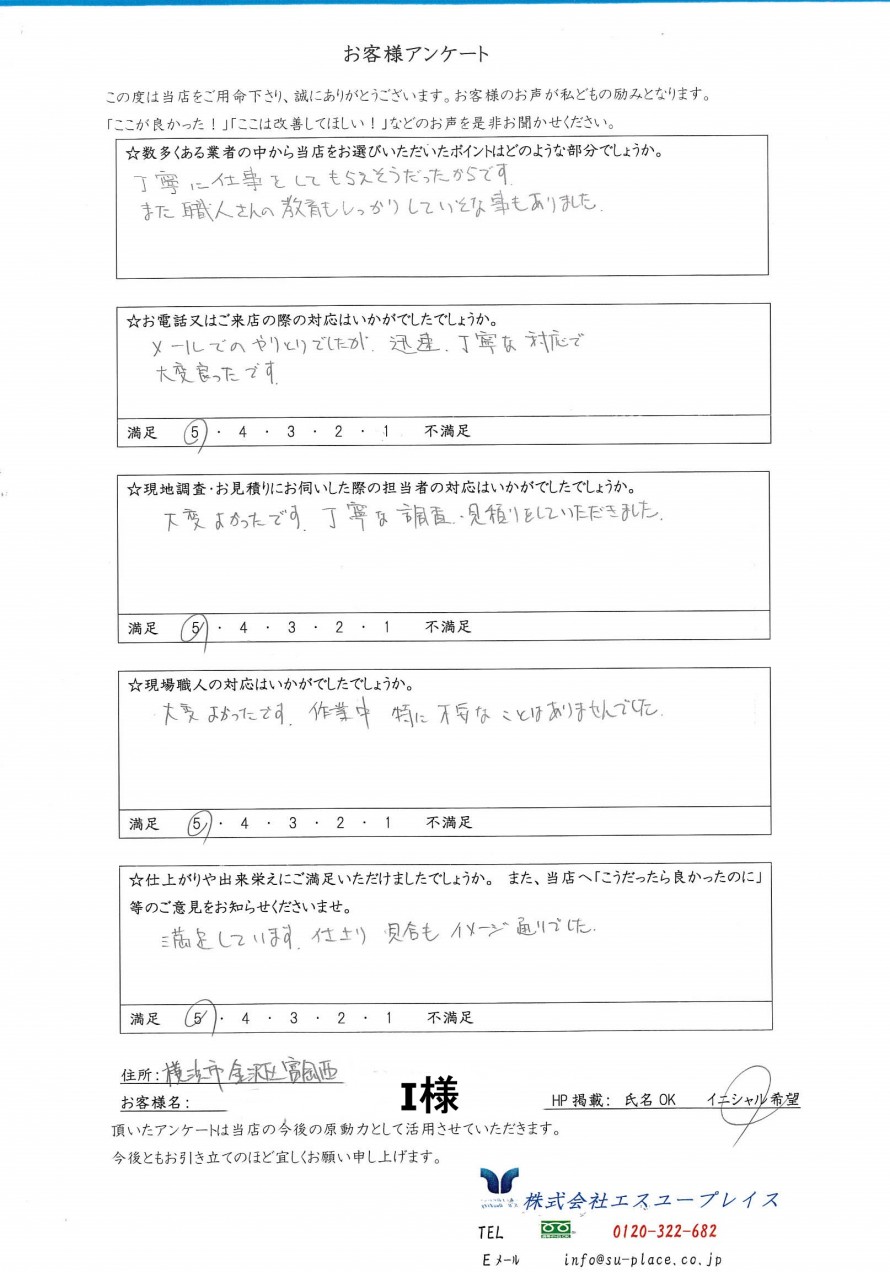 お客様アンケート
この度は当店をご用命下さり、誠にありがとうございます。お客様のお声が私どもの励みとなります。
「ここが良かった！」「ここは改善してほしい！」などのお声を是非お聞かせください。
☆数多くある業者の中から当店をお選びいただいたポイントはどのような部分でしょうか。
丁寧に仕事をしてもらえそうだったからです。
また職人さんの教育もしっかりしていそな事もありました。
☆お電話又はご来店の際の対応はいかがでしたでしょうか。
メールでのやりとりでしたが、迅速、丁寧な対応で
大変良ったです。
満足 5・4・3・2・1 不満足
☆現地調査・お見積りにお伺いした際の担当者の対応はいかがでしたでしょうか。
大変よかったです。丁寧な調査・見積りをしていただきました。
満足 5・4・3・2・1 不満足
☆現場職人の対応はいかがでしたでしょうか。
大変よかったです。作業中 特に不安なことはありませんでした。
満足 5・4・3・2・1 不満足
☆仕上がりや出来栄えにご満足いただけましたでしょうか。 また、当店へ「こうだったら良かったのに」
等のご意見をお知らせくださいませ。
満足しています。仕上り具合もイメージ通りでした。
満足 5・4・3・2・1 不満足
住所：横浜市金沢区富岡西
お客様名： I様 HP掲載： 氏名OK イニシャル希望
頂いたアンケートは当店の今後の原動力として活用させていただきます。
今後ともお引き立てのほど宜しくお願い申し上げます。
株式会社エスユープレイス
TEL 0120-322-682
Eメール info@su-place.co.jp